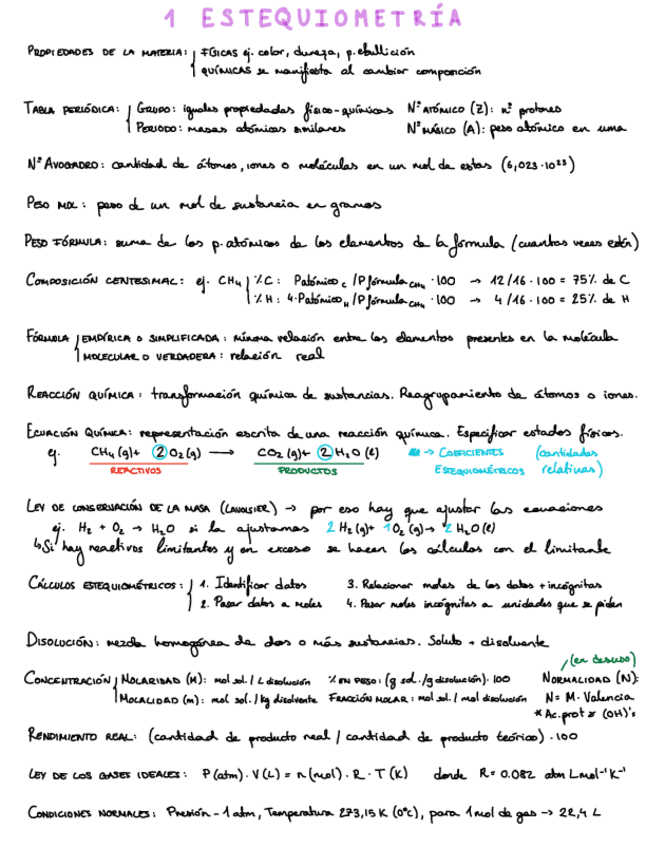 1 ESTEQUIOMETRÍA
PROPIEDADES DE LA MATERIA: FÍSICAS ej. color, dureza, p. ebullición
QUÍMICAS se manifiesta al cambiar composición
TABLA PERIÓDICA: GRUPO: iguales propiedades físico-químicas Nº ATÓMICO (Z): nº protones
PERIODO: masas atómicas similares Nº MÁSICO (A): peso atómico en uma
Nº AVOGADRO: cantidad de átomos, iones o moléculas en un mol de estas (6,023·10²³)
PESO MOL: peso de un mol de sustancia en gramos
PESO FÓRMULA: suma de los p. atómicos de los elementos de la fórmula (cuantas veces estén)
COMPOSICIÓN CENTESIMAL: ej. CH₄ %C: Patómico C / Pfórmula CH₄ · 100 → 12/16 · 100 = 75% de C
%H: 4·Patómico H / Pfórmula CH₄ · 100 → 4/16 · 100 = 25% de H
FÓRMULA EMPÍRICA O SIMPLIFICADA: mínima relación entre los elementos presentes en la molécula
MOLECULAR O VERDADERA: relación real
REACCIÓN QUÍMICA: transformación química de sustancias. Reagrupamiento de átomos o iones.
ECUACIÓN QUÍMICA: representación escrita de una reacción química. Especificar estados físicos.
ej. CH₄ (g) + 2 O₂ (g) → CO₂ (g) + 2 H₂O (l) → COEFICIENTES (cantidades
REACTIVOS PRODUCTOS ESTEQUIOMÉTRICOS relativas)
LEY DE CONSERVACIÓN DE LA MASA (LAVOISIER) → por eso hay que ajustar las ecuaciones
ej. H₂ + O₂ → H₂O si la ajustamos 2 H₂ (g) + 1 O₂ (g) → 2 H₂O (l)
↳ Si hay reactivos limitantes y en exceso se hacen los cálculos con el limitante
CÁLCULOS ESTEQUIOMÉTRICOS: 1. Identificar datos 3. Relacionar moles de los datos + incógnitas
2. Pasar datos a moles 4. Pasar moles incógnitas a unidades que se piden
DISOLUCIÓN: mezcla homogénea de dos o más sustancias. Soluto + disolvente
(en desuso)
CONCENTRACIÓN MOLARIDAD (M): mol sol. / L disolución % EN PESO: (g sol. / g disolución) · 100 NORMALIDAD (N):
MOLALIDAD (m): mol sol. / kg disolvente FRACCIÓN MOLAR: mol sol. / mol disolución N = M · Valencia
* Ac. prot (OH)'s
RENDIMIENTO REAL: (cantidad de producto real / cantidad de producto teórico) · 100
LEY DE LOS GASES IDEALES: P (atm) · V (L) = n (mol) · R · T (K) donde R = 0.082 atm L mol⁻¹ K⁻¹
CONDICIONES NORMALES: Presión - 1 atm, Temperatura 273,15 K (0ºC), para 1 mol de gas → 22,4 L